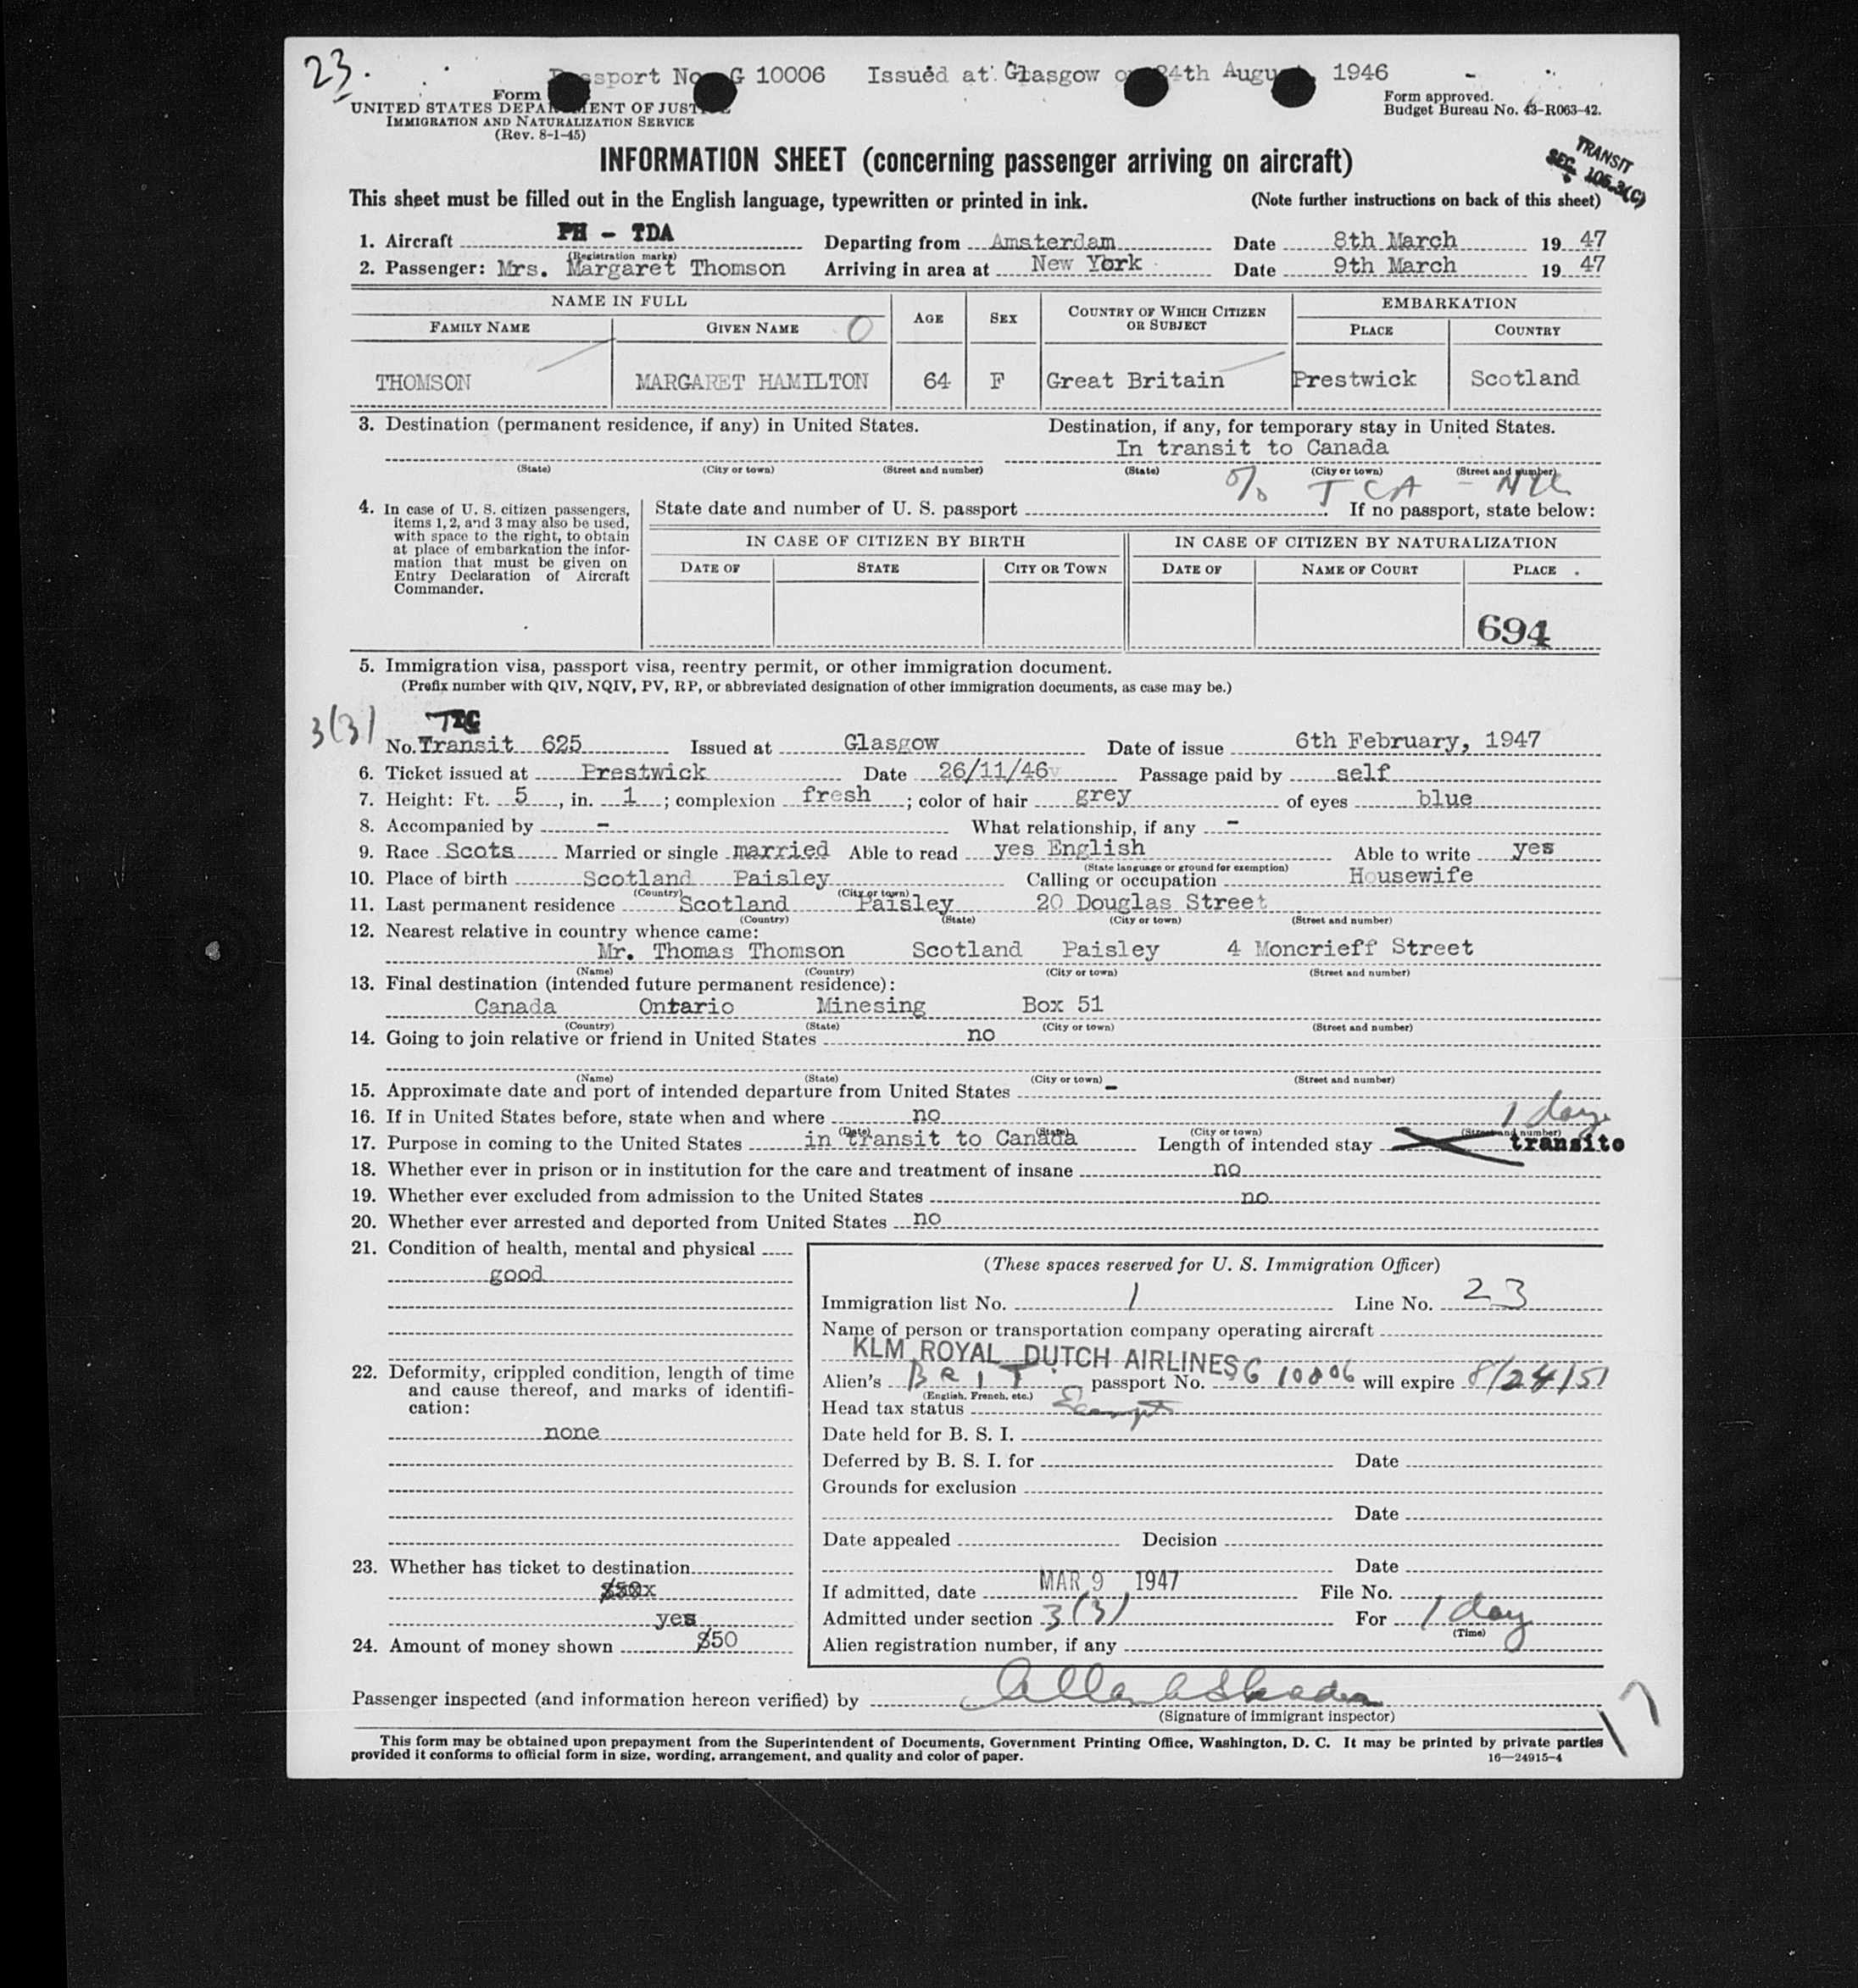 23.
Passport No. G 10006 Issued at Glasgow on 24th August, 1946
Form
UNITED STATES DEPARTMENT OF JUSTICE
IMMIGRATION AND NATURALIZATION SERVICE
(Rev. 8-1-45)
Form approved.
Budget Bureau No. 43-R063-42.
INFORMATION SHEET (concerning passenger arriving on aircraft)
TRANSIT
SEC. 105.3(C)
This sheet must be filled out in the English language, typewritten or printed in ink. (Note further instructions on back of this sheet)
1. Aircraft PH - TDA Departing from Amsterdam Date 8th March 19 47
(Registration marks)
2. Passenger: Mrs. Margaret Thomson Arriving in area at New York Date 9th March 19 47
NAME IN FULL AGE SEX COUNTRY OF WHICH CITIZEN OR SUBJECT EMBARKATION
FAMILY NAME GIVEN NAME PLACE COUNTRY
THOMSON MARGARET HAMILTON 64 F Great Britain Prestwick Scotland
3. Destination (permanent residence, if any) in United States. Destination, if any, for temporary stay in United States.
In transit to Canada
(State) (City or town) (Street and number) (State) (City or town) (Street and number)
% TCA - NYC
4. In case of U. S. citizen passengers,
items 1, 2, and 3 may also be used,
with space to the right, to obtain
at place of embarkation the infor-
mation that must be given on
Entry Declaration of Aircraft
Commander.
State date and number of U. S. passport If no passport, state below:
IN CASE OF CITIZEN BY BIRTH IN CASE OF CITIZEN BY NATURALIZATION
DATE OF STATE CITY OR TOWN DATE OF NAME OF COURT PLACE
694
5. Immigration visa, passport visa, reentry permit, or other immigration document.
(Prefix number with QIV, NQIV, PV, RP, or abbreviated designation of other immigration documents, as case may be.)
3(3)
No. Transit 625 Issued at Glasgow Date of issue 6th February, 1947
6. Ticket issued at Prestwick Date 26/11/46 Passage paid by self
7. Height: Ft. 5, in. 1; complexion fresh; color of hair grey of eyes blue
8. Accompanied by - What relationship, if any -
9. Race Scots Married or single married Able to read yes English Able to write yes
(State language or ground for exemption)
10. Place of birth Scotland Paisley Calling or occupation Housewife
(Country) (City or town)
11. Last permanent residence Scotland Paisley 20 Douglas Street
(Country) (State) (City or town) (Street and number)
12. Nearest relative in country whence came:
Mr. Thomas Thomson Scotland Paisley 4 Moncrieff Street
(Name) (Country) (City or town) (Street and number)
13. Final destination (intended future permanent residence):
Canada Ontario Minesing Box 51
(Country) (State) (City or town) (Street and number)
14. Going to join relative or friend in United States no
(Name) (State) (City or town) (Street and number)
15. Approximate date and port of intended departure from United States -
16. If in United States before, state when and where no 1 day
(Date) (State) (City or town) (Street and number)
17. Purpose in coming to the United States in transit to Canada Length of intended stay transito
18. Whether ever in prison or in institution for the care and treatment of insane no
19. Whether ever excluded from admission to the United States no
20. Whether ever arrested and deported from United States no
21. Condition of health, mental and physical
good
22. Deformity, crippled condition, length of time
and cause thereof, and marks of identifi-
cation:
none
23. Whether has ticket to destination
$50x
yes
24. Amount of money shown $50
(These spaces reserved for U. S. Immigration Officer)
Immigration list No. 1 Line No. 23
Name of person or transportation company operating aircraft
KLM ROYAL DUTCH AIRLINES
Alien's BRIT. passport No. G 10006 will expire 8/24/51
(English, French, etc.)
Head tax status Exempt
Date held for B. S. I.
Deferred by B. S. I. for Date
Grounds for exclusion
Date
Date appealed Decision
Date
If admitted, date MAR 9 1947 File No.
Admitted under section 3(3) For 1 day
(Time)
Alien registration number, if any
Passenger inspected (and information hereon verified) by
(Signature of immigrant inspector)
This form may be obtained upon prepayment from the Superintendent of Documents, Government Printing Office, Washington, D. C. It may be printed by private parties
provided it conforms to official form in size, wording, arrangement, and quality and color of paper. 16—24915-4